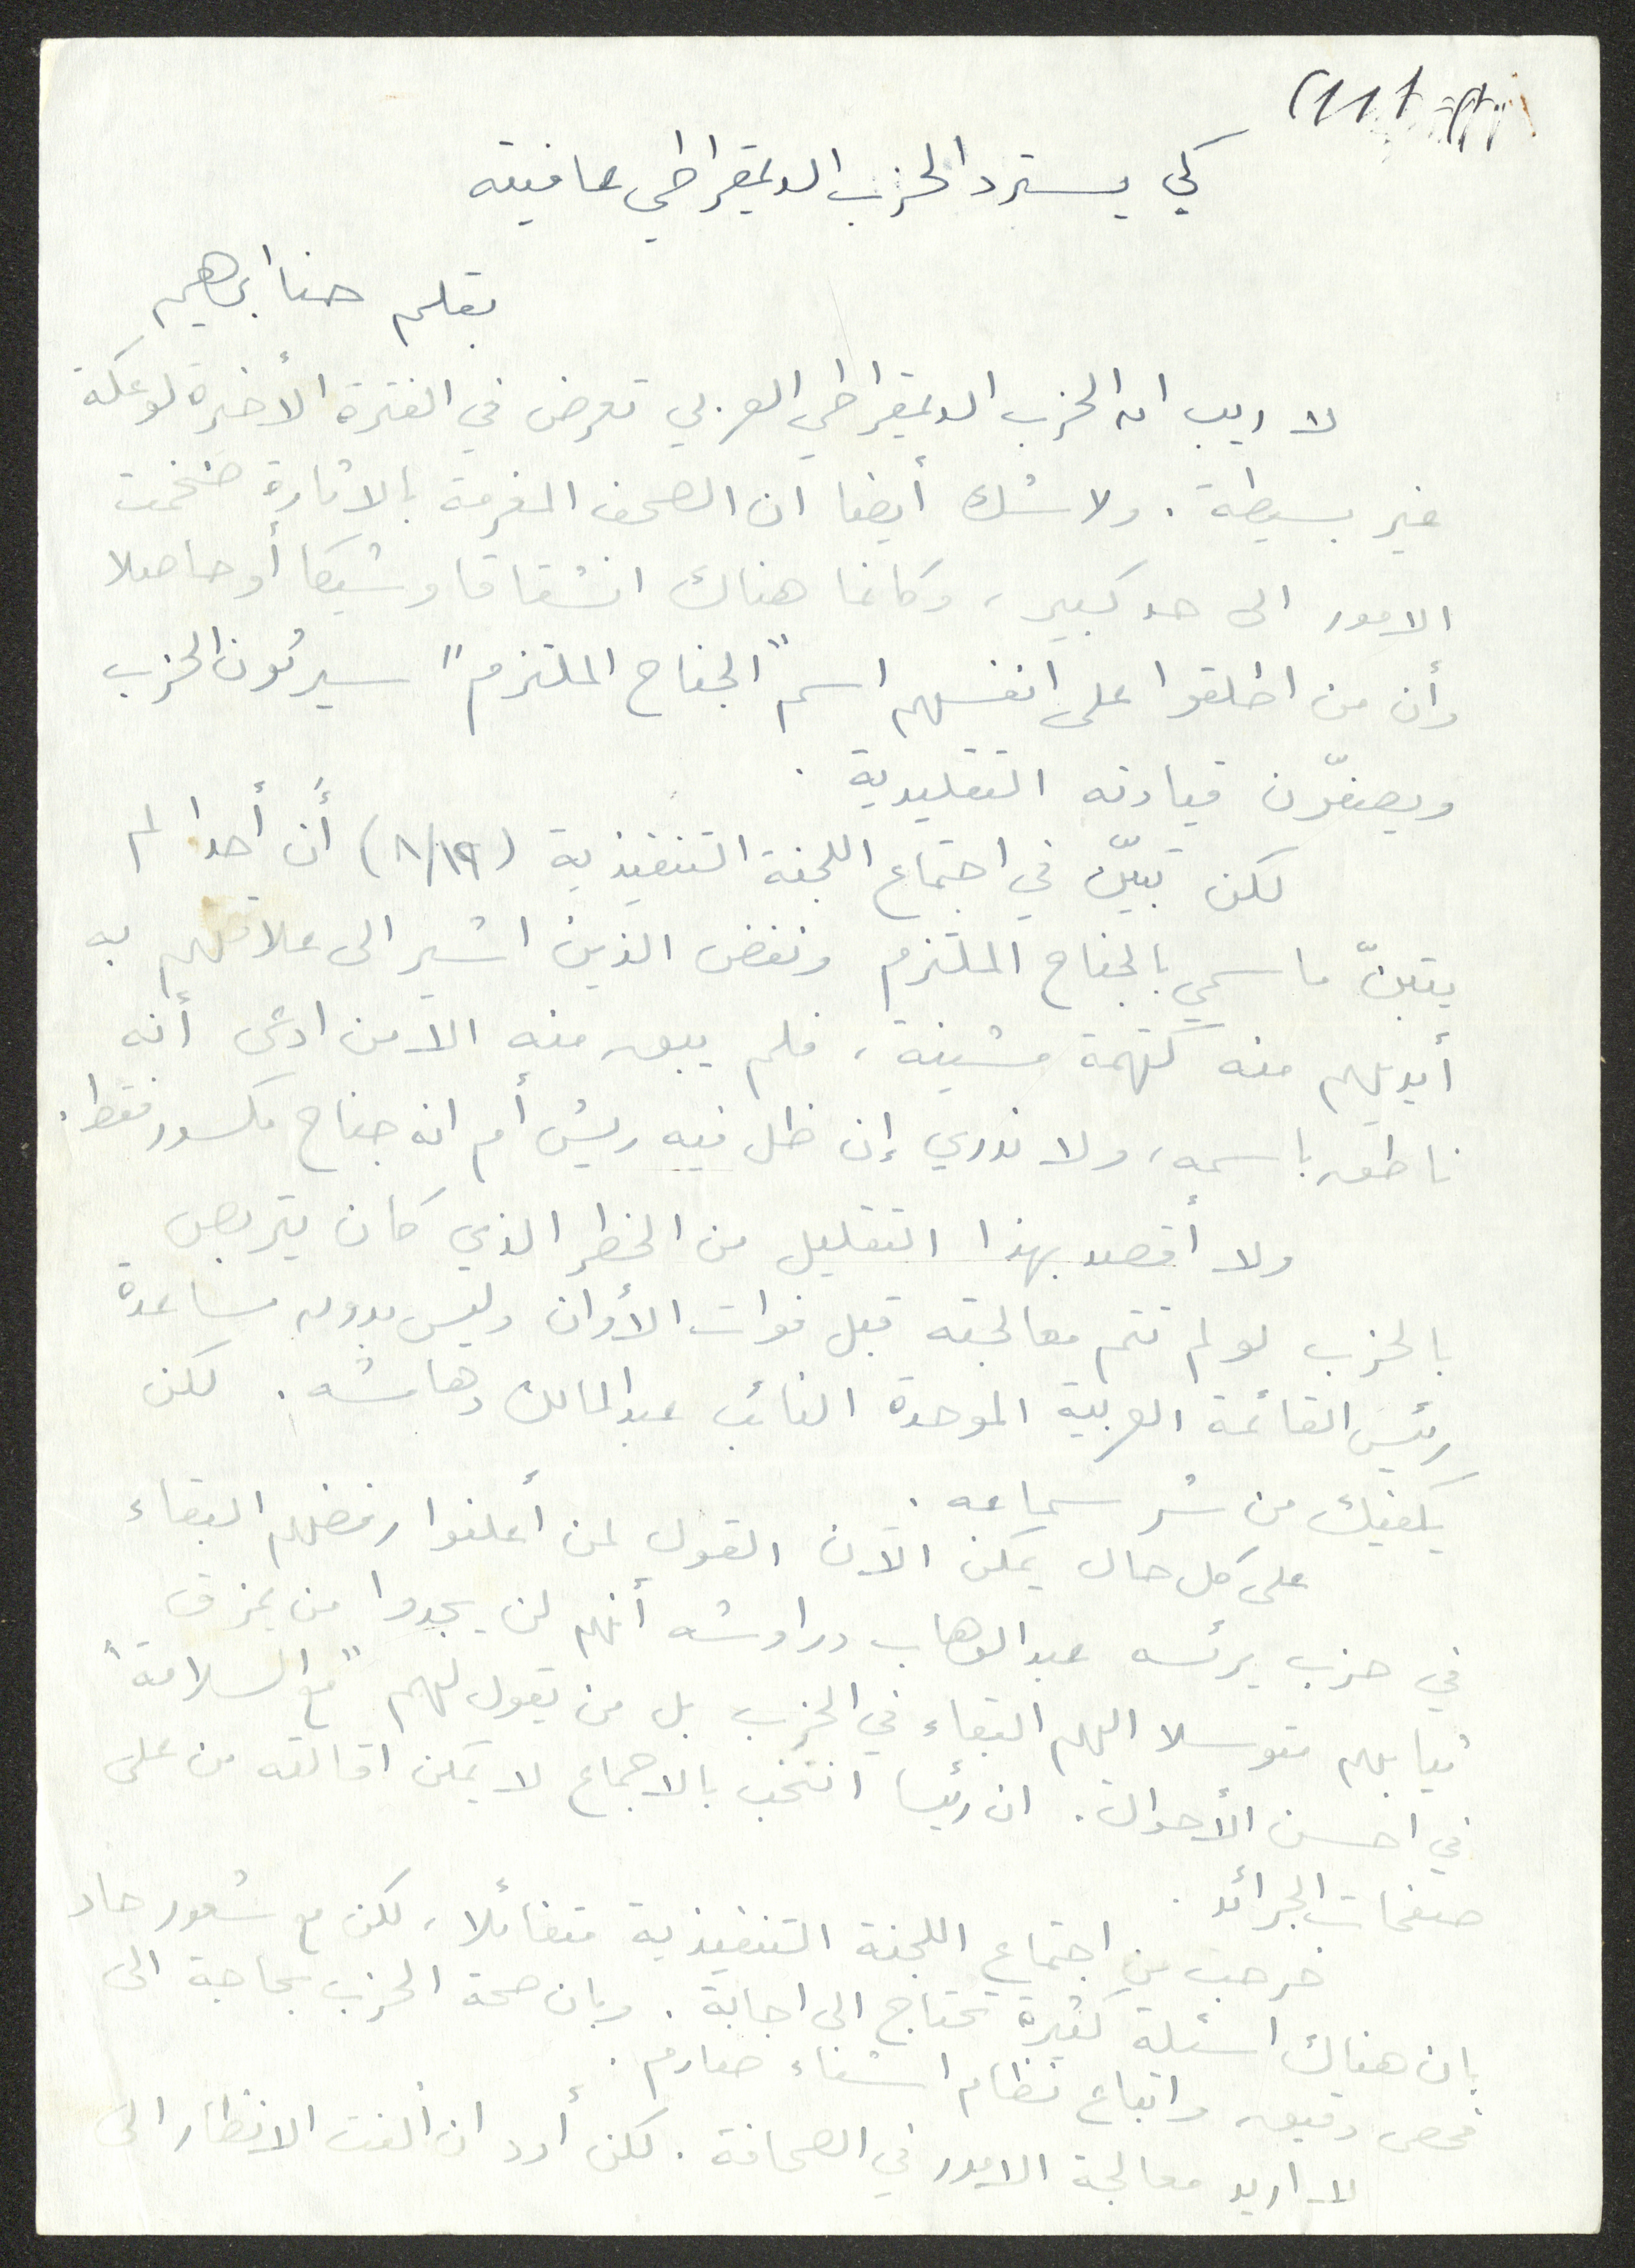 كي يسترد الحزب الديمقراطي عافيته
بقلم حنا ابراهيم
لا ريب ان الحزب الديمقراطي العربي تعرض في الفترة الأخيرة لوعكة
غير بسيطة. ولا شك أيضا ان الصحف المغرمة بالاثارة ضخمت
الامور الى حد كبير، وكانما هناك انشقاقا وشيكا أو حاصلا
وأن من اطلقوا على انفسهم اسم "الجناح الملتزم" سيرثون الحزب
ويصفّون قيادته التقليدية.
لكن تبيّن في اجتماع اللجنة التنفيذية (٨/١٩) أن أحدا لم
يتبنّ ما سمي بالجناح الملتزم ونفض الذين اشير الى علاقتهم به
أيديهم منه كتهمة مشينة، فلم يبق منه الا من ادعى أنه
ناطق باسمه، ولا ندري إن ظل فيه ريش أم انه جناح مكسور فقط.
ولا أقصد بهذا التقليل من الخطر الذي كان يتربص
بالحزب لو لم تتم معالجته قبل فوات الأوان وليس بدون مساعدة
رئيس القائمة العربية الموحدة النائب عبد المالك دهامشه. لكن
يكفيك من شر سماعه.
على كل حال يمكن الآن القول لمن أعلنوا رفضهم البقاء
في حزب يرئسه عبد الوهاب دراوشه أنهم لن يجدوا من يمزق
ثيابهم متوسلا اليهم البقاء في الحزب بل من يقول لهم "مع السلامة"
في احسن الأحوال. ان رئيسا انتخب بالاجماع لا يمكن اقالته من على
صفحات الجرائد.
خرجت من اجتماع اللجنة التنفيذية متفائلا، لكن مع شعور حاد
بان هناك اسئلة كثيرة تحتاج الى اجابة. وبان صحة الحزب بحاجة الى
فحص دقيق واتباع نظام اشفاء صارم.
لا اريد معالجة الامور في الصحافة. لكن أود ان ألفت الانظار الى